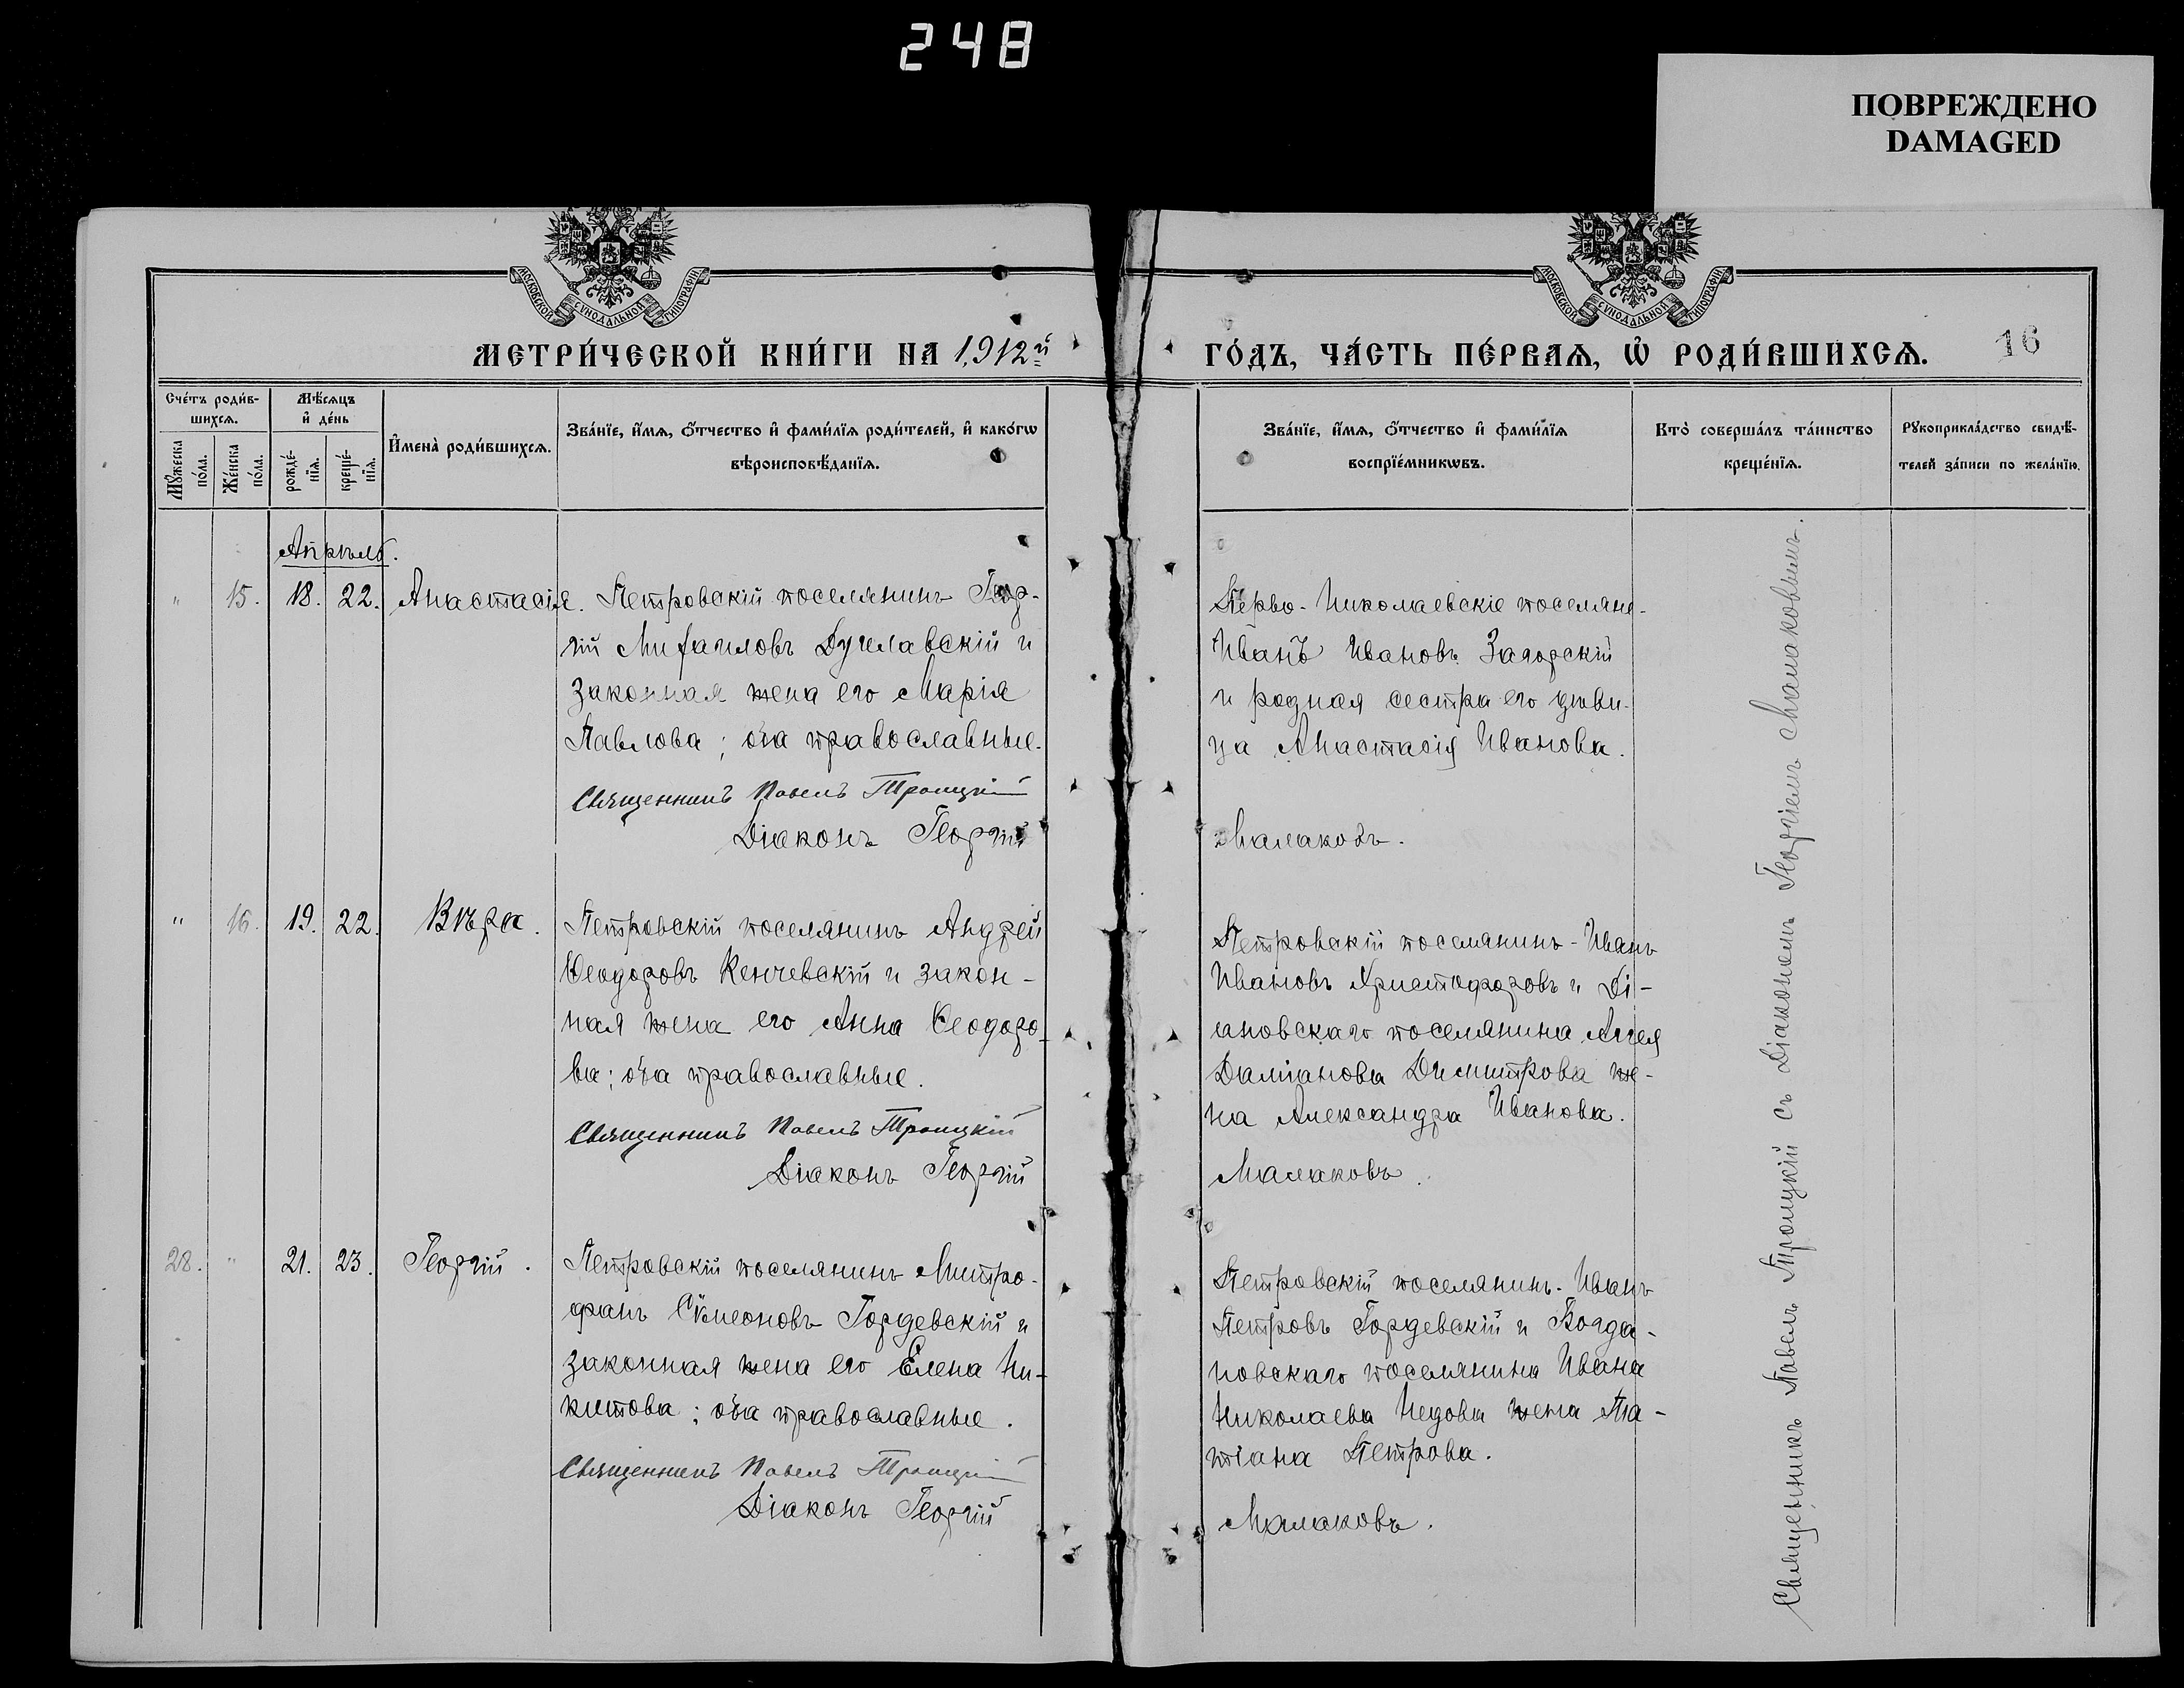 248
ПОВРЕЖДЕНО
DAMAGED
МОСКОВСКОЙ СѴНОДАЛЬНОЙ ТИПОГРАФІИ
МОСКОВСКОЙ СѴНОДАЛЬНОЙ ТИПОГРАФІИ
МЕТРИ́ЧЕСКОЙ КНИ́ГИ НА 1912й
ГО́ДЪ, ЧА́СТЬ ПЕ́РВАѦ, Ѡ҆ РОДИ́ВШИХСѦ.
16
Сче́тъ роди́в-
шихсѧ.
Мѣ́сѧцъ
и҆ де́нь
Мꙋ́жеска
по́ла.
Же́нска
по́ла.
рожде́-
нїѧ.
креще́-
нїѧ.
И҆мена̀ роди́вшихсѧ.
Зва́нїе, и҆́мѧ, ѻ҆́тчество и҆ фами́лїѧ роди́телей, и҆ како́гѡ
вѣроисповѣ́данїѧ.
Зва́нїе, и҆́мѧ, ѻ҆́тчество и҆ фами́лїѧ
воспрїе́мникѡвъ.
Кто̀ соверша́лъ та́инство
креще́нїѧ.
Рꙋкоприкла́дство свидѣ́-
телей за́писи по жела́нїю.
Апрѣль.
" 15. 18. 22. Анастасія. Петровскій поселянинъ Геор-
гій Михаиловъ Дуклавскій и
законная жена его Марія
Павлова; оба православные.
Священникъ Павелъ Троицкій
Діаконъ Георгій
Перво-Николаевскіе поселяне-
Иванъ Ивановъ Загорскій
и родная сестра его дѣви-
ца Анастасія Иванова.
Малаковъ.
" 16. 19. 22. Вѣра. Петровскій поселянинъ Андрей
Ѳеодоровъ Кенчевскій и закон-
ная жена его Анна Ѳеодоро-
ва; оба православные.
Священникъ Павелъ Троицкій
Діаконъ Георгій
Петровскій поселянинъ-Иванъ
Ивановъ Христофоровъ и Ді-
ановскаго поселянина
Даміанова Димитрова же-
на Александра Иванова.
Малаковъ.
28. " 21. 23. Георгій. Петровскій поселянинъ Митро-
фанъ Сѵмеоновъ Гордевскій и
законная жена его Елена Ни-
китова; оба православные.
Священникъ Павелъ Троицкій
Діаконъ Георгій
Петровскій поселянинъ-Иванъ
Петровъ Гордевскій и Богда-
новскаго поселянина Ивана
Николаева Недова жена Та-
тіана Петрова.
Малаковъ.
Священникъ Павелъ Троицкій съ Діакономъ Георгіемъ Малаковымъ.